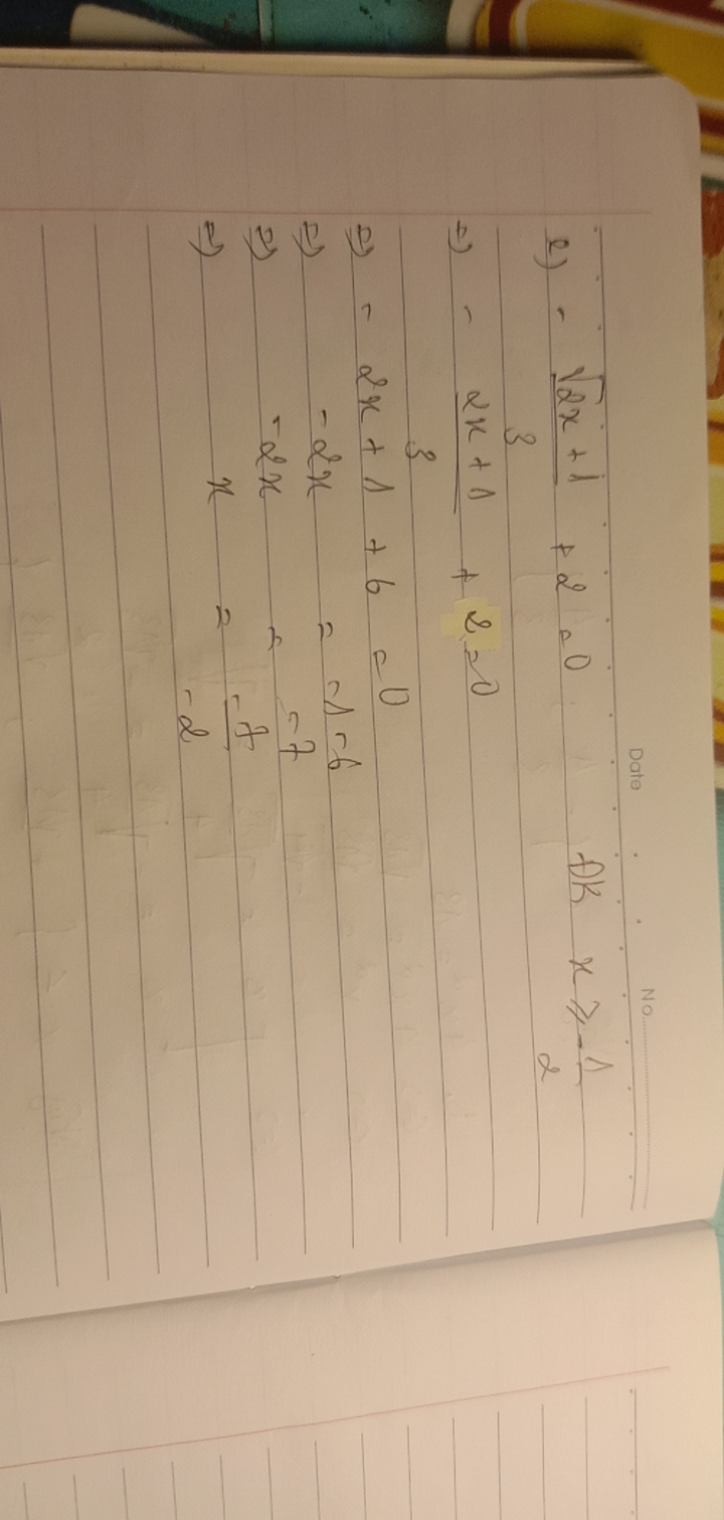 Date
No.
e) - √2x + 1 + 2 = 0 ĐK x ≥ - 1
3 2
=) - 2x + 1 + 2 = 0
3
=) - 2x + 1 + 6 = 0
=) -2x = -1 - 6
=) -2x = -7
=) x = -7
-2